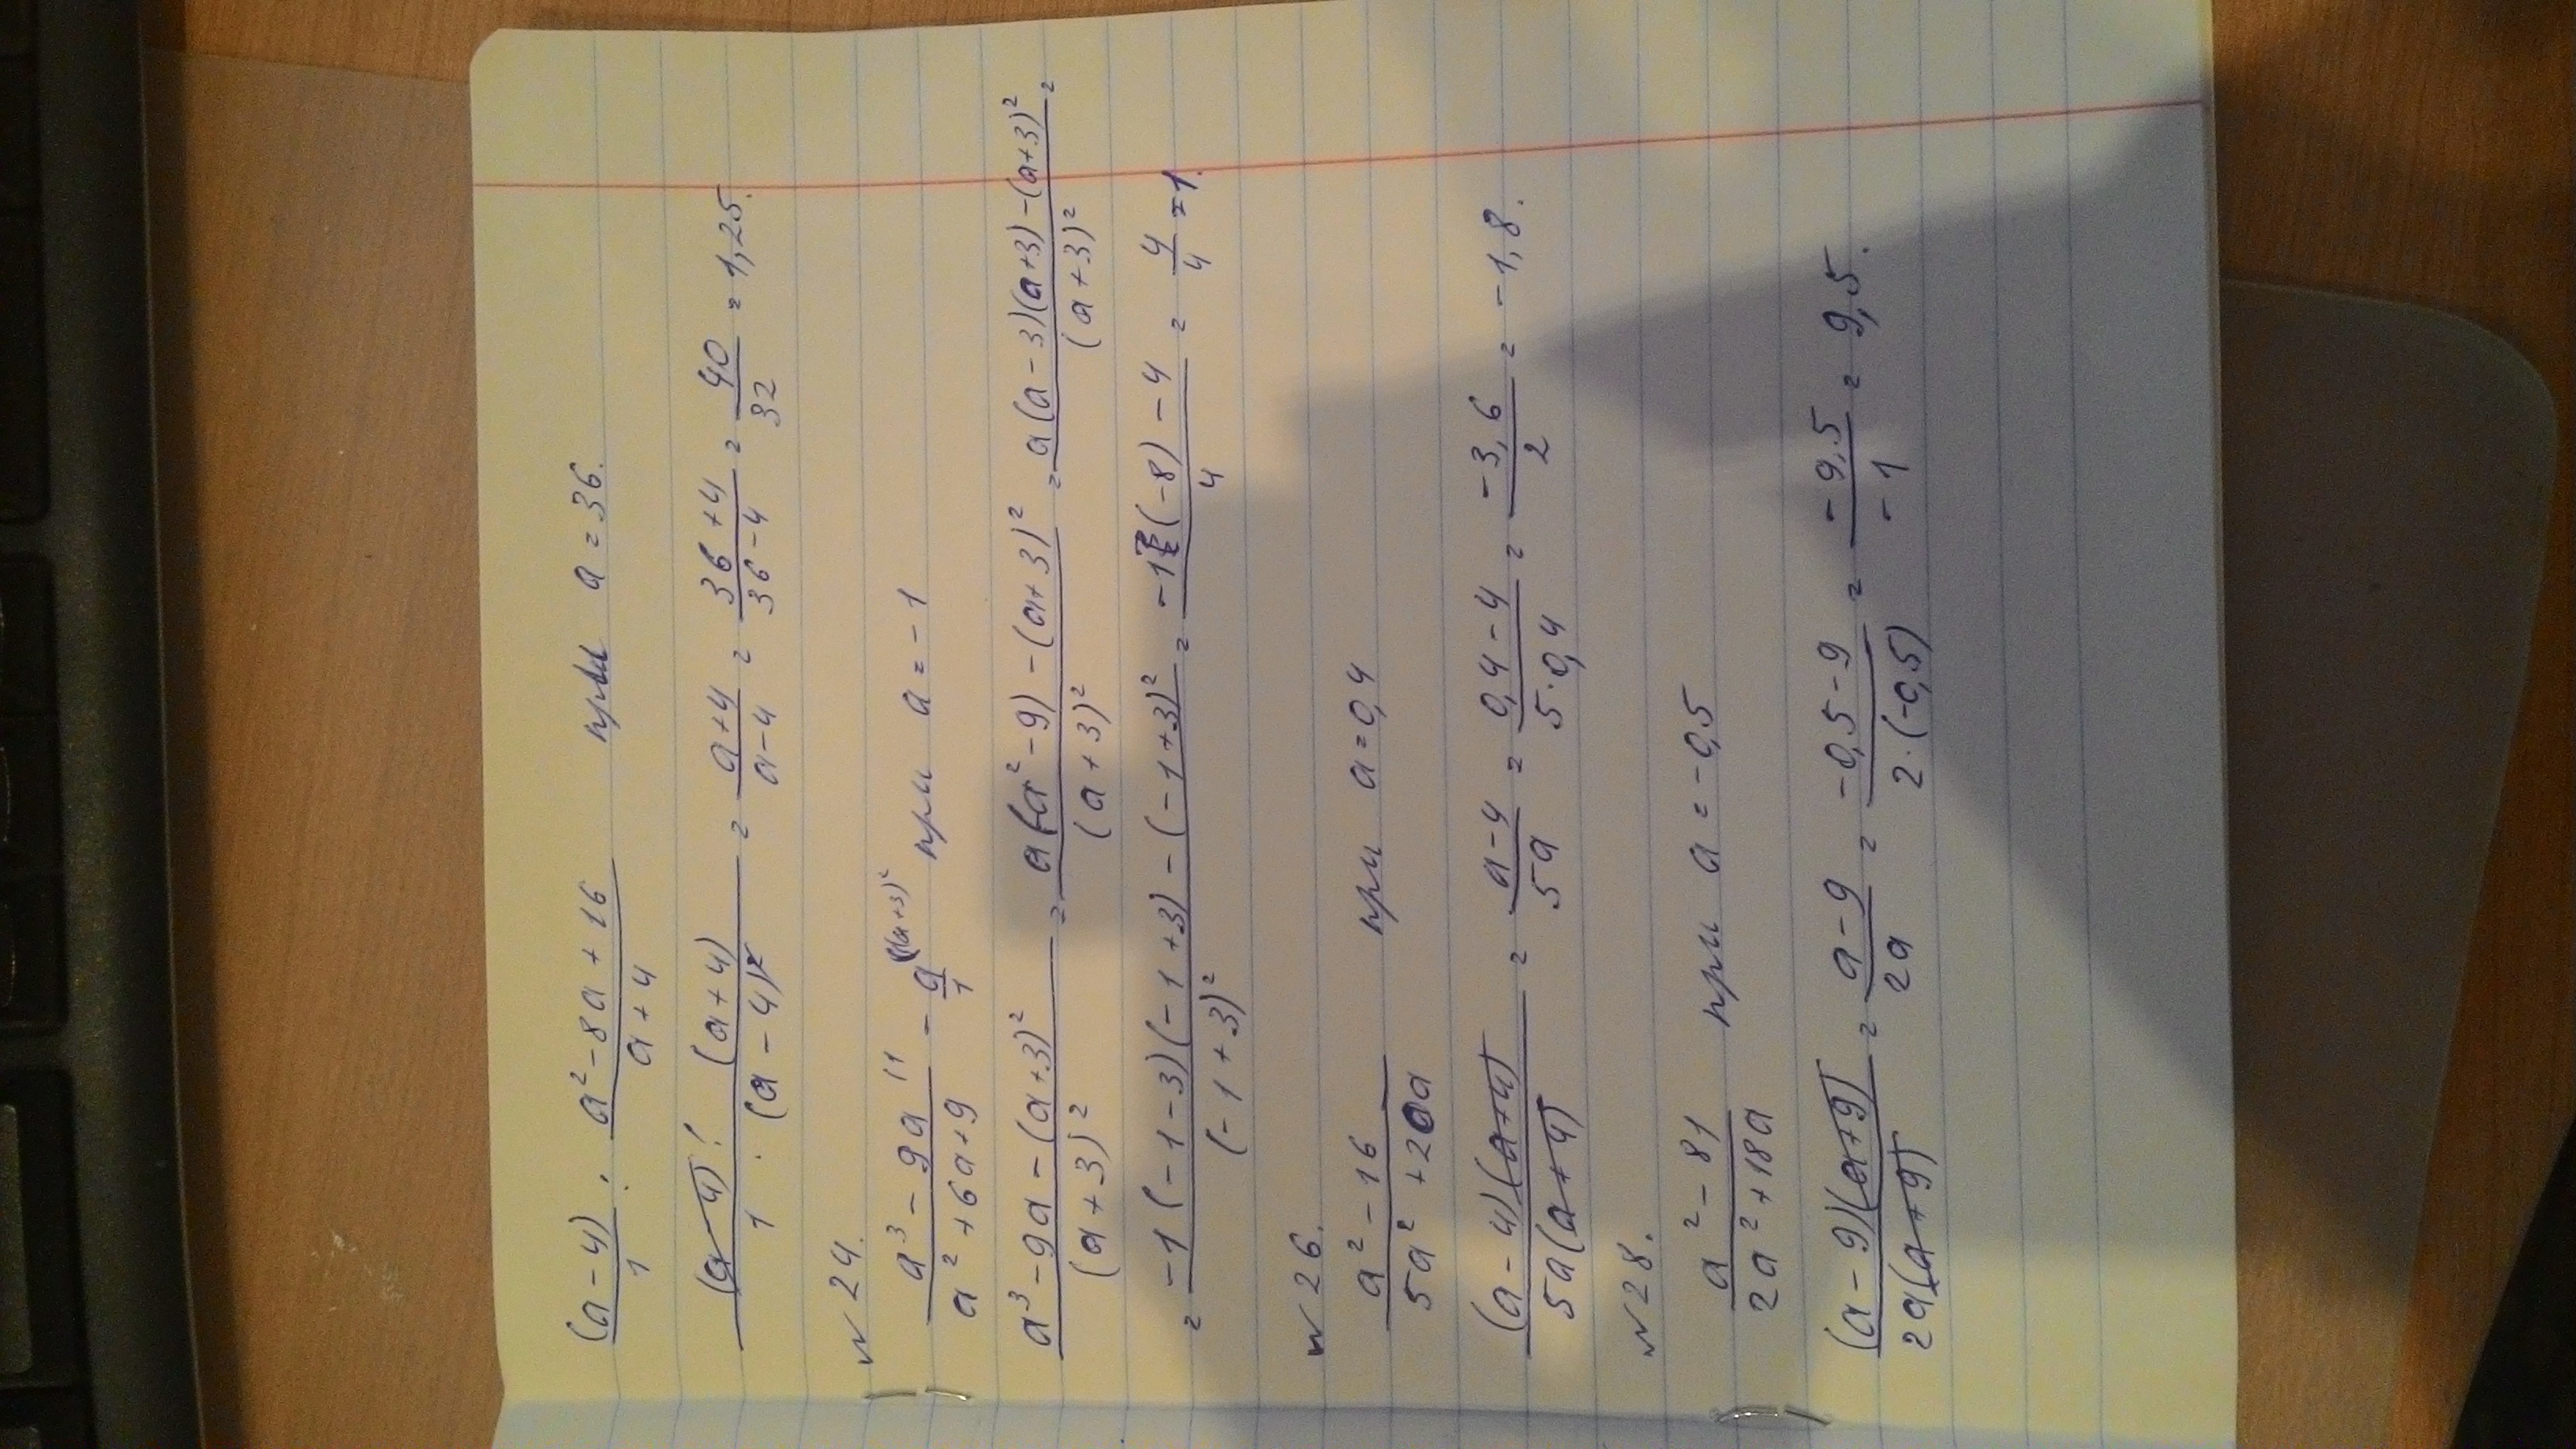 (a-4)/1 : (a²-8a+16)/(a+4) при a=36.
(a-4)/1 · (a+4)/(a-4)² = (a+4)/(a-4) = (36+4)/(36-4) = 40/32 = 1,25.
№24.
(a³-9a)/(a²+6a+9) - a/1 при a=-1
(a³-9a-(a+3)²)/(a+3)² = (a(a²-9)-(a+3)²)/(a+3)² = (a(a-3)(a+3)-(a+3)²)/(a+3)² =
= (-1(-1-3)(-1+3)-(-1+3)²)/(-1+3)² = (-1(-8)-4)/4 = 4/4 = 1.
№26.
(a²-16)/(5a²+20a) при a=0,4
(a-4)(a+4)/5a(a+4) = (a-4)/5a = (0,4-4)/(5·0,4) = -3,6/2 = -1,8.
№28.
(a²-81)/(2a²+18a) при a=-0,5
(a-9)(a+9)/2a(a+9) = (a-9)/2a = (-0,5-9)/(2·(-0,5)) = -9,5/-1 = 9,5.